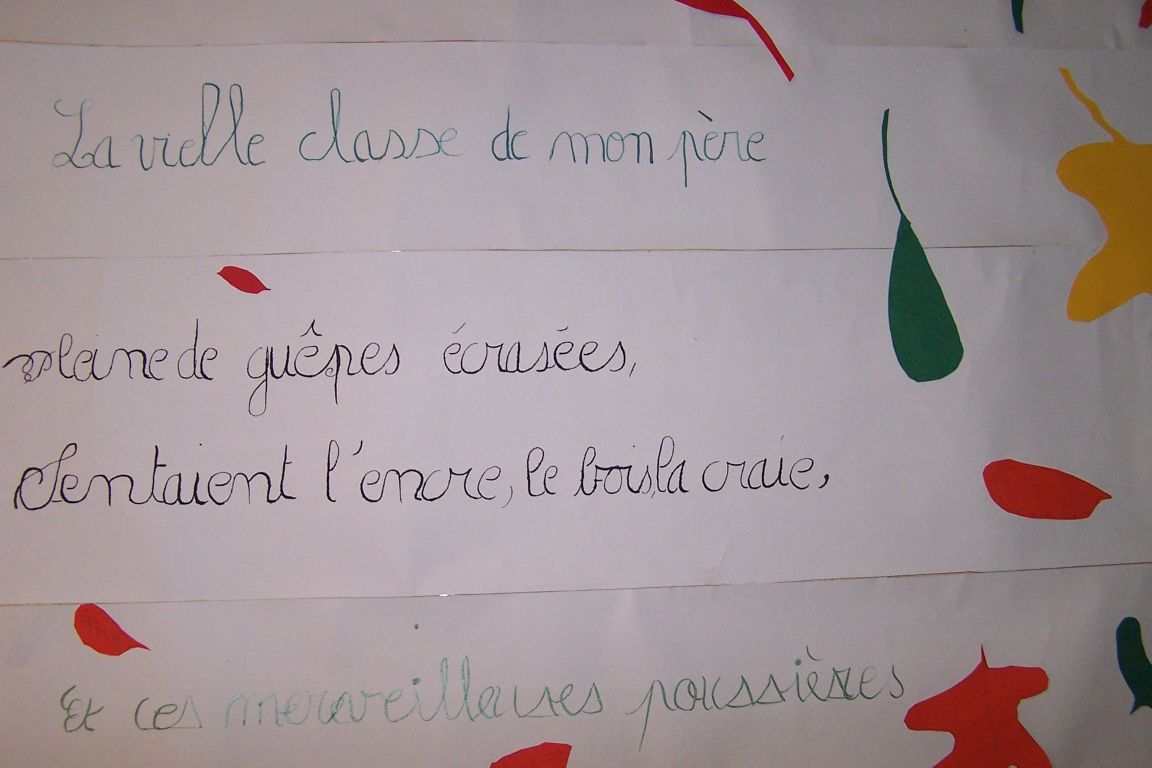 La vielle classe de mon père
pleine de guêpes écrasées,
Sentaient l'encre, le bois, la craie,
Et ces merveilleuses poussières